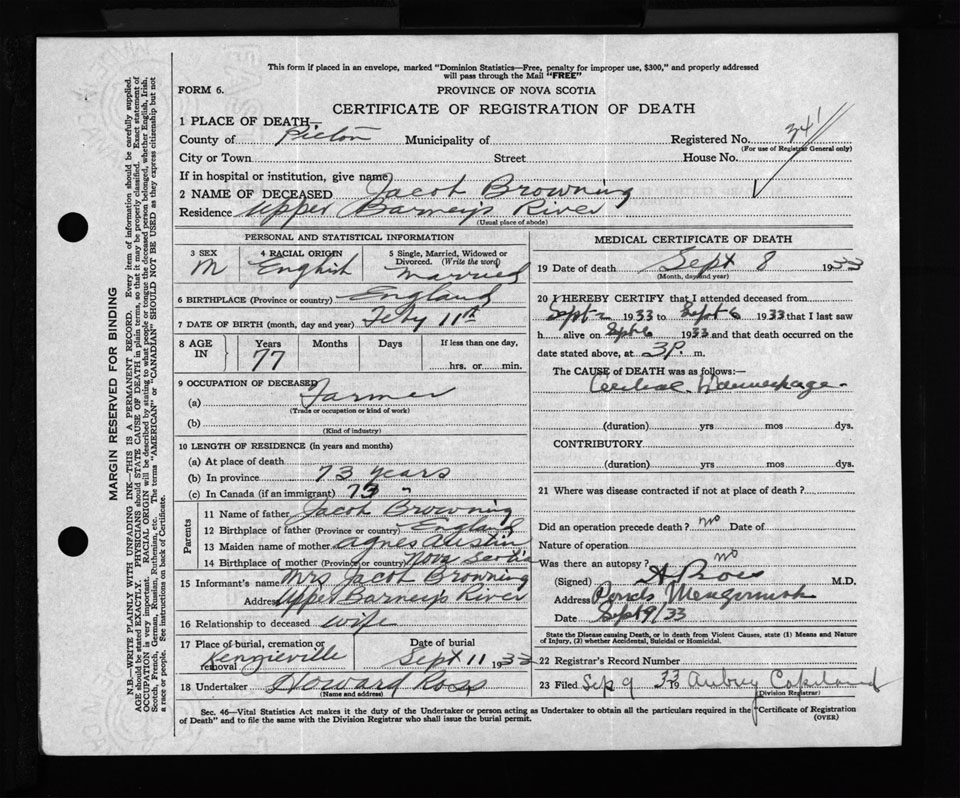 This form if placed in an envelope, marked "Dominion Statistics—Free, penalty for improper use, $300," and properly addressed
will pass through the Mail "FREE"
FORM 6.
PROVINCE OF NOVA SCOTIA
CERTIFICATE OF REGISTRATION OF DEATH
1 PLACE OF DEATH—
County of Pictou Municipality of Registered No. 341
(For use of Registrar General only)
City or Town Street House No.
If in hospital or institution, give name)
2 NAME OF DECEASED Jacob Browning
Residence Upper Barney's River
(Usual place of abode)
PERSONAL AND STATISTICAL INFORMATION
3 SEX 4 RACIAL ORIGIN 5 Single, Married, Widowed or
Divorced. (Write the word)
M English Married
6 BIRTHPLACE (Province or country) England
7 DATE OF BIRTH (month, day and year) Feby 11th
8 AGE IN Years Months Days If less than one day,
77 hrs. or min.
9 OCCUPATION OF DECEASED
(a) Farmer
(Trade or occupation or kind of work)
(b)
(Kind of industry)
10 LENGTH OF RESIDENCE (in years and months)
(a) At place of death
(b) In province 73 years
(c) In Canada (if an immigrant) 73 "
Parents
11 Name of father Jacob Browning
12 Birthplace of father (Province or country) England
13 Maiden name of mother Agnes Austin
14 Birthplace of mother (Province or country) Nova Scotia
15 Informant's name Mrs Jacob Browning
Address Upper Barney's River
16 Relationship to deceased wife
17 Place of burial, cremation or
removal Kenzieville
Date of burial
Sept 11 1933
18 Undertaker Howard Ross
(Name and address)
MEDICAL CERTIFICATE OF DEATH
19 Date of death Sept 8 1933
(Month, day and year)
20 I HEREBY CERTIFY that I attended deceased from
Sept 2 1933 to Sept 6 1933 that I last saw
h alive on Sept 6 1933 and that death occurred on
the date stated above, at 3 P. m.
The CAUSE of DEATH was as follows:—
(duration) yrs mos dys.
CONTRIBUTORY
(duration) yrs mos dys.
21 Where was disease contracted if not at place of death?
Did an operation precede death? no Date of
Nature of operation
Was there an autopsy? no
(Signed) M.D.
Address
Date Sept 9/33
State the Disease causing Death, or in death from Violent Causes, state (1) Means and Nature
of Injury, (2) whether Accidental, Suicidal or Homicidal.
22 Registrar's Record Number
23 Filed Sep 9 33 To Aubrey Copeland
(Division Registrar)
Sec. 46—Vital Statistics Act makes it the duty of the Undertaker or person acting as Undertaker to obtain all the particulars required in the "Certificate of Registration
of Death" and to file the same with the Division Registrar who shall issue the burial permit.
(OVER)
MARGIN RESERVED FOR BINDING
N.B.—WRITE PLAINLY WITH UNFADING INK—THIS IS A PERMANENT RECORD. Every item of information should be carefully supplied.
AGE should be stated EXACTLY. PHYSICIANS should STATE CAUSE OF DEATH in plain terms, so that it may be properly classified. Exact statement of
OCCUPATION is very important. RACIAL ORIGIN will be described by stating to what people or tongue the deceased person belonged, whether English, Irish,
Scotch, French, German, Russian, Ruthenian, etc. The terms "AMERICAN" or "CANADIAN" SHOULD NOT BE USED as they express citizenship but not
a race or people. See instructions on back of Certificate.